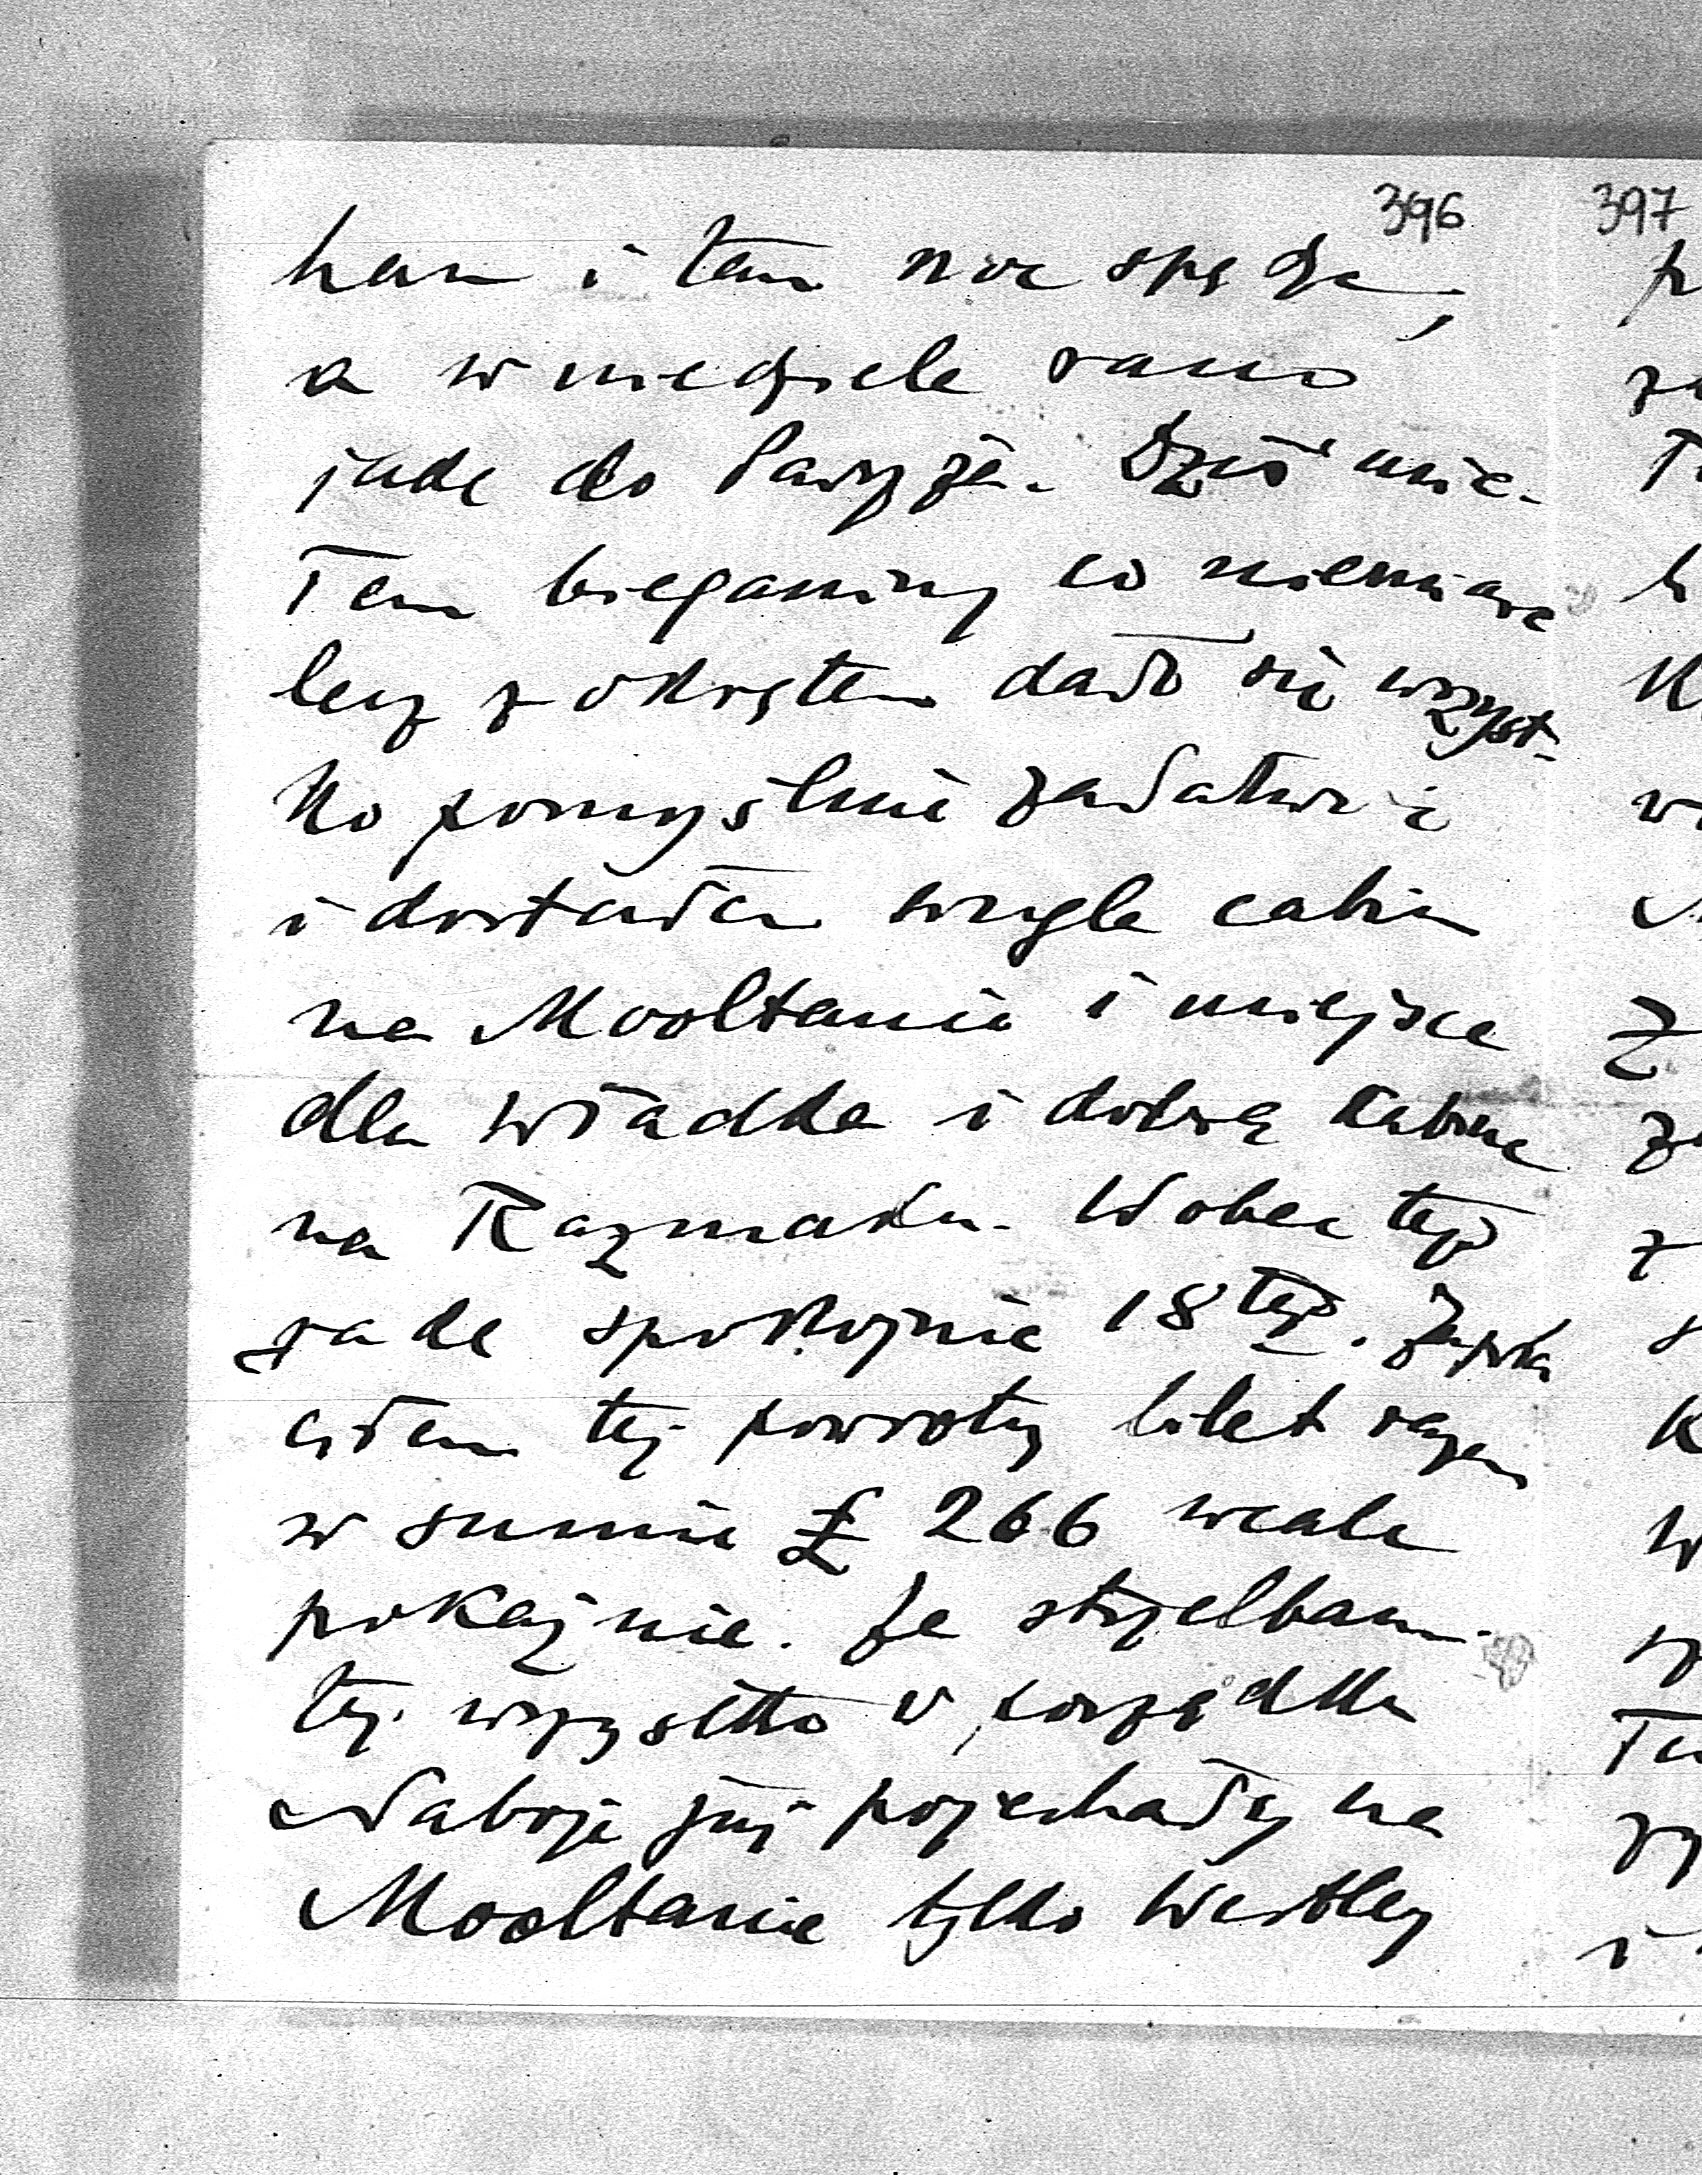 396 397
ham i tam noc spędzę,
a w niedzielę rano
jadę do Paryża. Dziś mia-
łem bieganiny co niemiara
lecz z okrętem dało się wszyst-
ko pomyślnie załatwić
i dostałem single cabin
na Mooltanie i miejsce
dla Władka i dobrą kabinę
na Razmaku. Wobec tego
jadę spokojnie 18 tego. Zapła
ciłem też powrotny bilet razem
w sumie £ 266 wcale
pokaźnie. Ze strzelbami
też wszystko w porządku
Naboje już pojechały na
Mooltanie tylko Westley